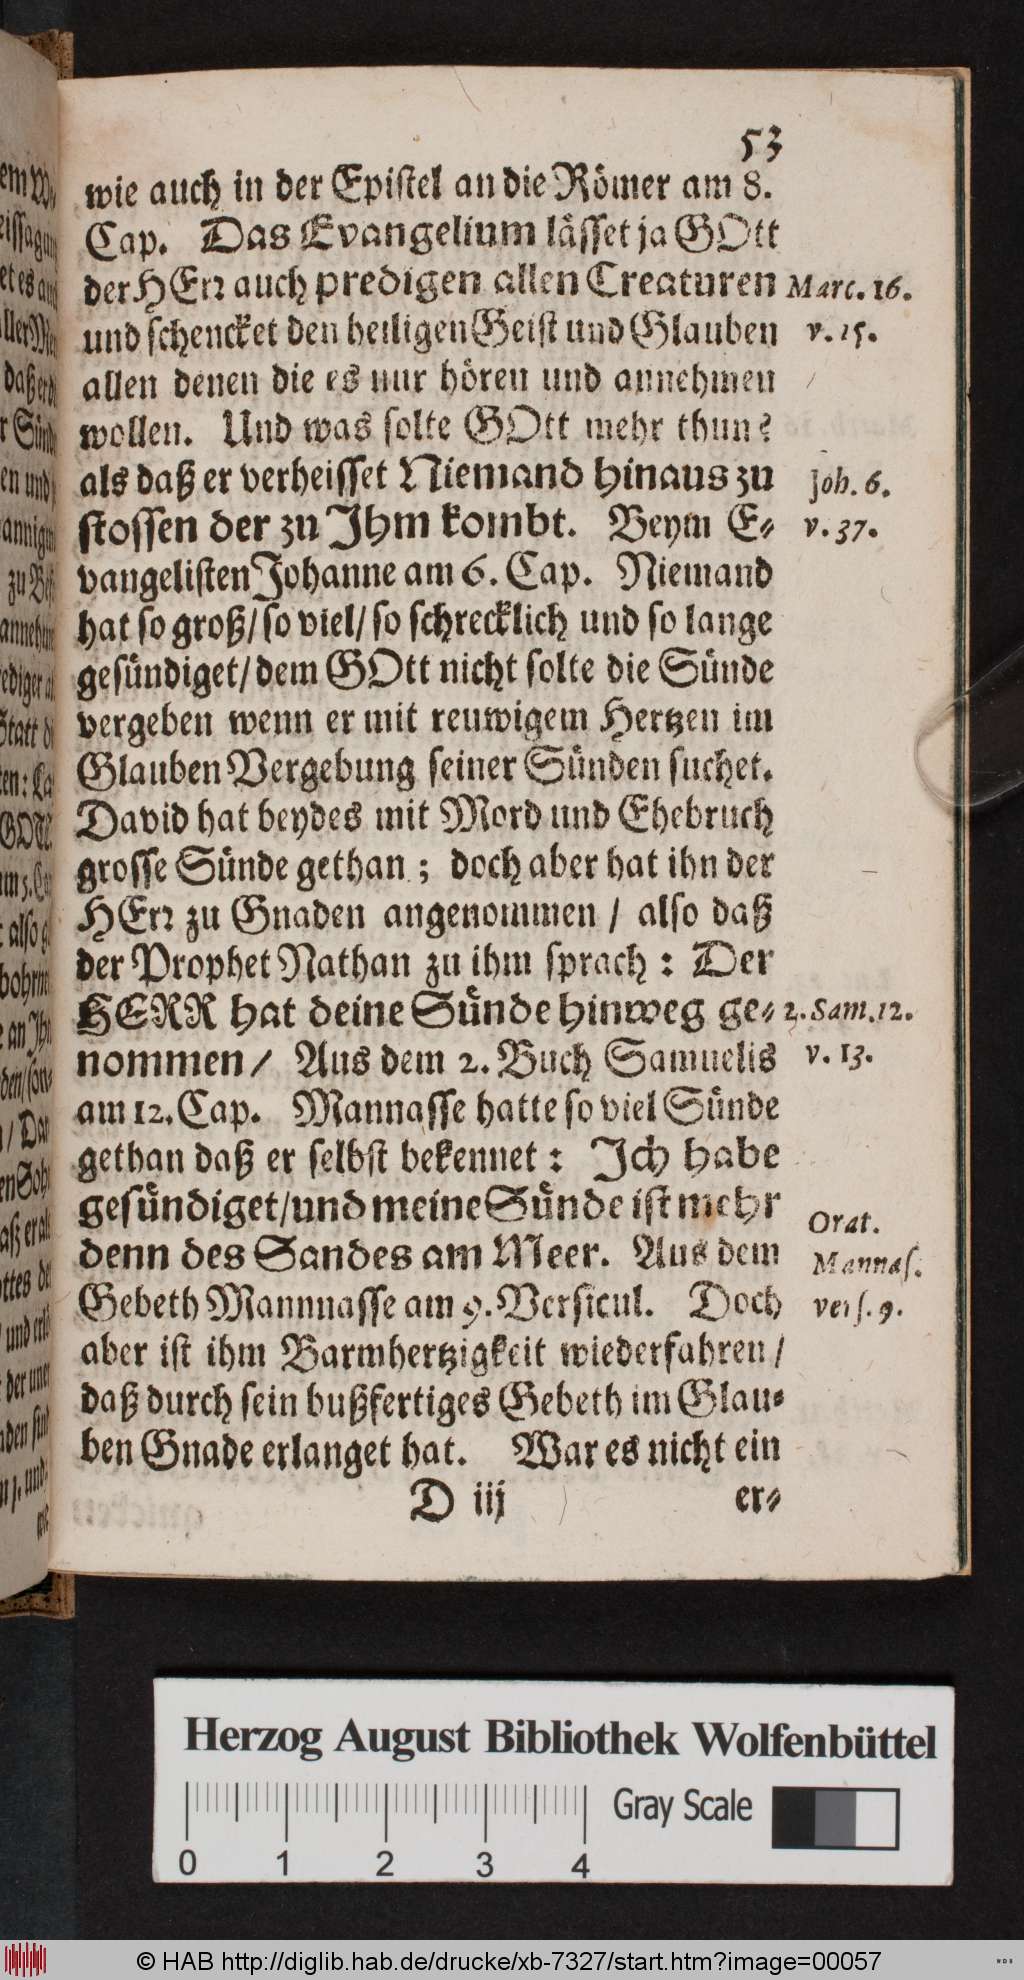 53
wie auch in der Epistel an die Römer am 8.
Cap. Das Evangelium lässet ja GOtt
der HErr auch predigen allen Creaturen
Marc. 16.
und schencket den heiligen Geist und Glauben
v. 15.
allen denen die es nur hören und annehmen
wollen. Und was solte GOtt mehr thun?
als daß er verheisset Niemand hinaus zu
Joh. 6.
stossen der zu Ihm kombt. Beym E-
v. 37.
vangelisten Johanne am 6. Cap. Niemand
hat so groß/ so viel/ so schrecklich und so lange
gesündiget/ dem GOtt nicht solte die Sünde
vergeben wenn er mit reuwigem Hertzen im
Glauben Vergebung seiner Sünden suchet.
David hat beydes mit Mord und Ehebruch
grosse Sünde gethan; doch aber hat ihn der
HErr zu Gnaden angenommen / also daß
der Prophet Nathan zu ihm sprach: Der
HERR hat deine Sünde hinweg ge-
2. Sam. 12.
nommen/ Aus dem 2. Buch Samuelis
v. 13.
am 12. Cap. Mannasse hatte so viel Sünde
gethan daß er selbst bekennet: Ich habe
gesündiget/ und meine Sünde ist mehr
Orat.
denn des Sandes am Meer. Aus dem
Mannas.
Gebeth Mannnasse am 9. Versicul. Doch
vers. 9.
aber ist ihm Barmhertzigkeit wiederfahren/
daß durch sein bußfertiges Gebeth im Glau-
ben Gnade erlanget hat. War es nicht ein
D iij
er-
Herzog August Bibliothek Wolfenbüttel
Gray Scale
0 1 2 3 4
© HAB http://diglib.hab.de/drucke/xb-7327/start.htm?image=00057